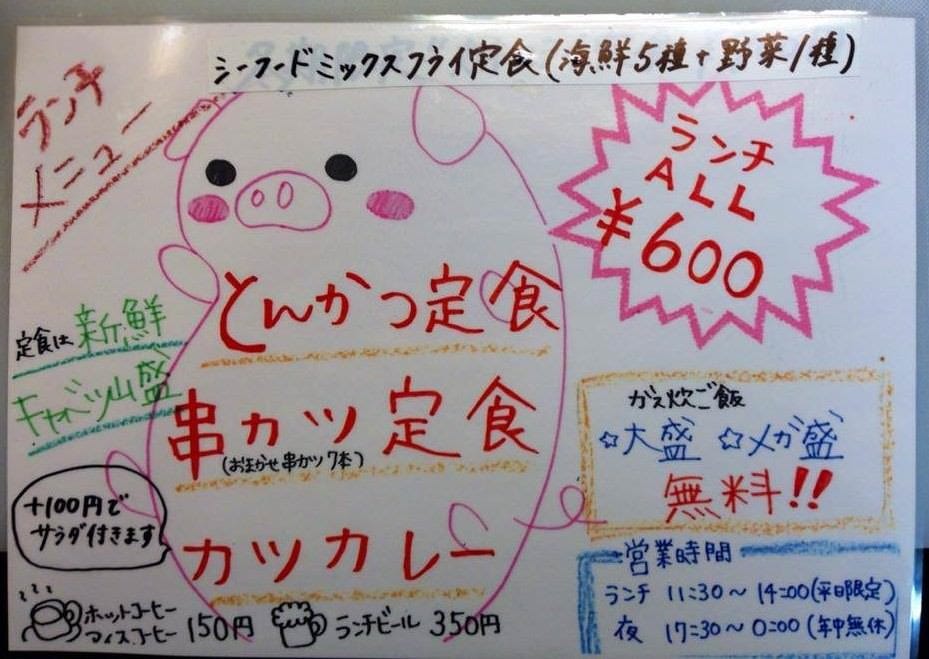 シーフードミックスフライ定食(海鮮5種+野菜1種)
ランチ
メニュー
ランチ
ALL
¥600
とんかつ定食
定食は新鮮
キャベツ山盛
串カツ定食
(おまかせ串カツ7本)
カツカレー
+100円で
サラダ付きます
ガス炊ご飯
☆大盛 ☆メガ盛
無料!!
営業時間
ランチ 11:30〜14:00(平日限定)
夜 17:30〜0:00(年中無休)
ホットコーヒー
アイスコーヒー 150円
ランチビール 350円